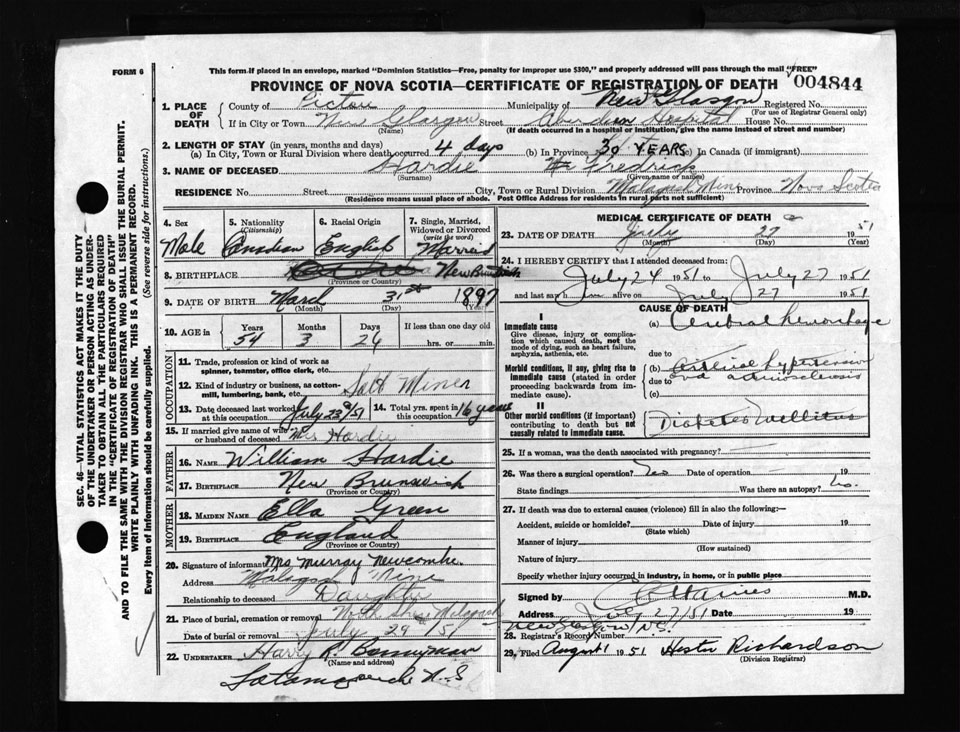 FORM 6
This form if placed in an envelope, marked "Dominion Statistics—Free, penalty for improper use $300," and properly addressed will pass through the mail "FREE"
PROVINCE OF NOVA SCOTIA—CERTIFICATE OF REGISTRATION OF DEATH
004844
1. PLACE OF DEATH
County of Pictou Municipality of New Glasgow Registered No.
(For use of Registrar General only)
If in City or Town New Glasgow Street Aberdeen Hospital House No.
(Name) (If death occurred in a hospital or institution, give the name instead of street and number)
2. LENGTH OF STAY (in years, months and days)
(a) In City, Town or Rural Division where death occurred 4 days (b) In Province 30 YEARS (c) In Canada (if immigrant)
3. NAME OF DECEASED Hardie Fredrick
(Surname) (Given name or names)
RESIDENCE No. Street City, Town or Rural Division Malagash Mine Province Nova Scotia
(Residence means usual place of abode. Post Office Address for residents in rural parts not sufficient)
4. Sex
Male
5. Nationality
(Citizenship)
Canadian
6. Racial Origin
English
7. Single, Married, Widowed or Divorced
(write the word)
Married
8. BIRTHPLACE New Brunswick
(Province or Country)
9. DATE OF BIRTH March 31st 1897
(Month) (Day) (Year)
10. AGE in Years Months Days If less than one day old
54 3 26 hrs. or min.
OCCUPATION
11. Trade, profession or kind of work as spinner, teamster, office clerk, etc.
12. Kind of industry or business, as cotton-mill, lumbering, bank, etc. Salt Miner
13. Date deceased last worked at this occupation July 23/51
14. Total yrs. spent in this occupation 16 years
15. If married give name of wife or husband of deceased Mrs Hardie
FATHER
16. NAME William Hardie
17. BIRTHPLACE New Brunswick
(Province or Country)
MOTHER
18. MAIDEN NAME Ella Green
19. BIRTHPLACE England
(Province or Country)
20. Signature of informant Mrs Murray Newcombe
Address Malagash Mine
Relationship to deceased Daughter
21. Place of burial, cremation or removal North Shore Malagash
Date of burial or removal July 29/51
22. UNDERTAKER Harry R. Bonnyman
(Name and address)
Tatamagouche N.S
MEDICAL CERTIFICATE OF DEATH
23. DATE OF DEATH July 27 1951
(Month) (Day) (Year)
24. I HEREBY CERTIFY that I attended deceased from:
July 24 1951 to July 27 1951
and last saw h alive on July 27 1951
CAUSE OF DEATH
I
Immediate cause
Give disease, injury or complication which caused death, not the mode of dying, such as heart failure, asphyxia, asthenia, etc.
(a) Cerebral hemorrhage
due to
Morbid conditions, if any, giving rise to immediate cause (stated in order proceeding backwards from immediate cause).
(b) Arterial hypertension
due to and arteriosclerosis
(c)
II
Other morbid conditions (if important) contributing to death but not causally related to immediate cause.
Diabetes Mellitus
25. If a woman, was the death associated with pregnancy?
26. Was there a surgical operation? No Date of operation 19
State findings Was there an autopsy? No.
27. If death was due to external causes (violence) fill in also the following:—
Accident, suicide or homicide? Date of injury 19
(State which)
Manner of injury
(How sustained)
Nature of injury
Specify whether injury occurred in industry, in home, or in public place
Signed by M.D.
Address July 27/51 Date 19
New Glasgow N.S.
28. Registrar's Record Number
29. Filed August 1 1951 Hester Richardson
(Division Registrar)
SEC. 46—VITAL STATISTICS ACT MAKES IT THE DUTY
OF THE UNDERTAKER OR PERSON ACTING AS UNDER-
TAKER TO OBTAIN ALL THE PARTICULARS REQUIRED
IN THE "CERTIFICATE OF REGISTRATION OF DEATH"
AND TO FILE THE SAME WITH THE DIVISION REGISTRAR WHO SHALL ISSUE THE BURIAL PERMIT.
WRITE PLAINLY WITH UNFADING INK. THIS IS A PERMANENT RECORD.
Every item of information should be carefully supplied. (See reverse side for instructions.)